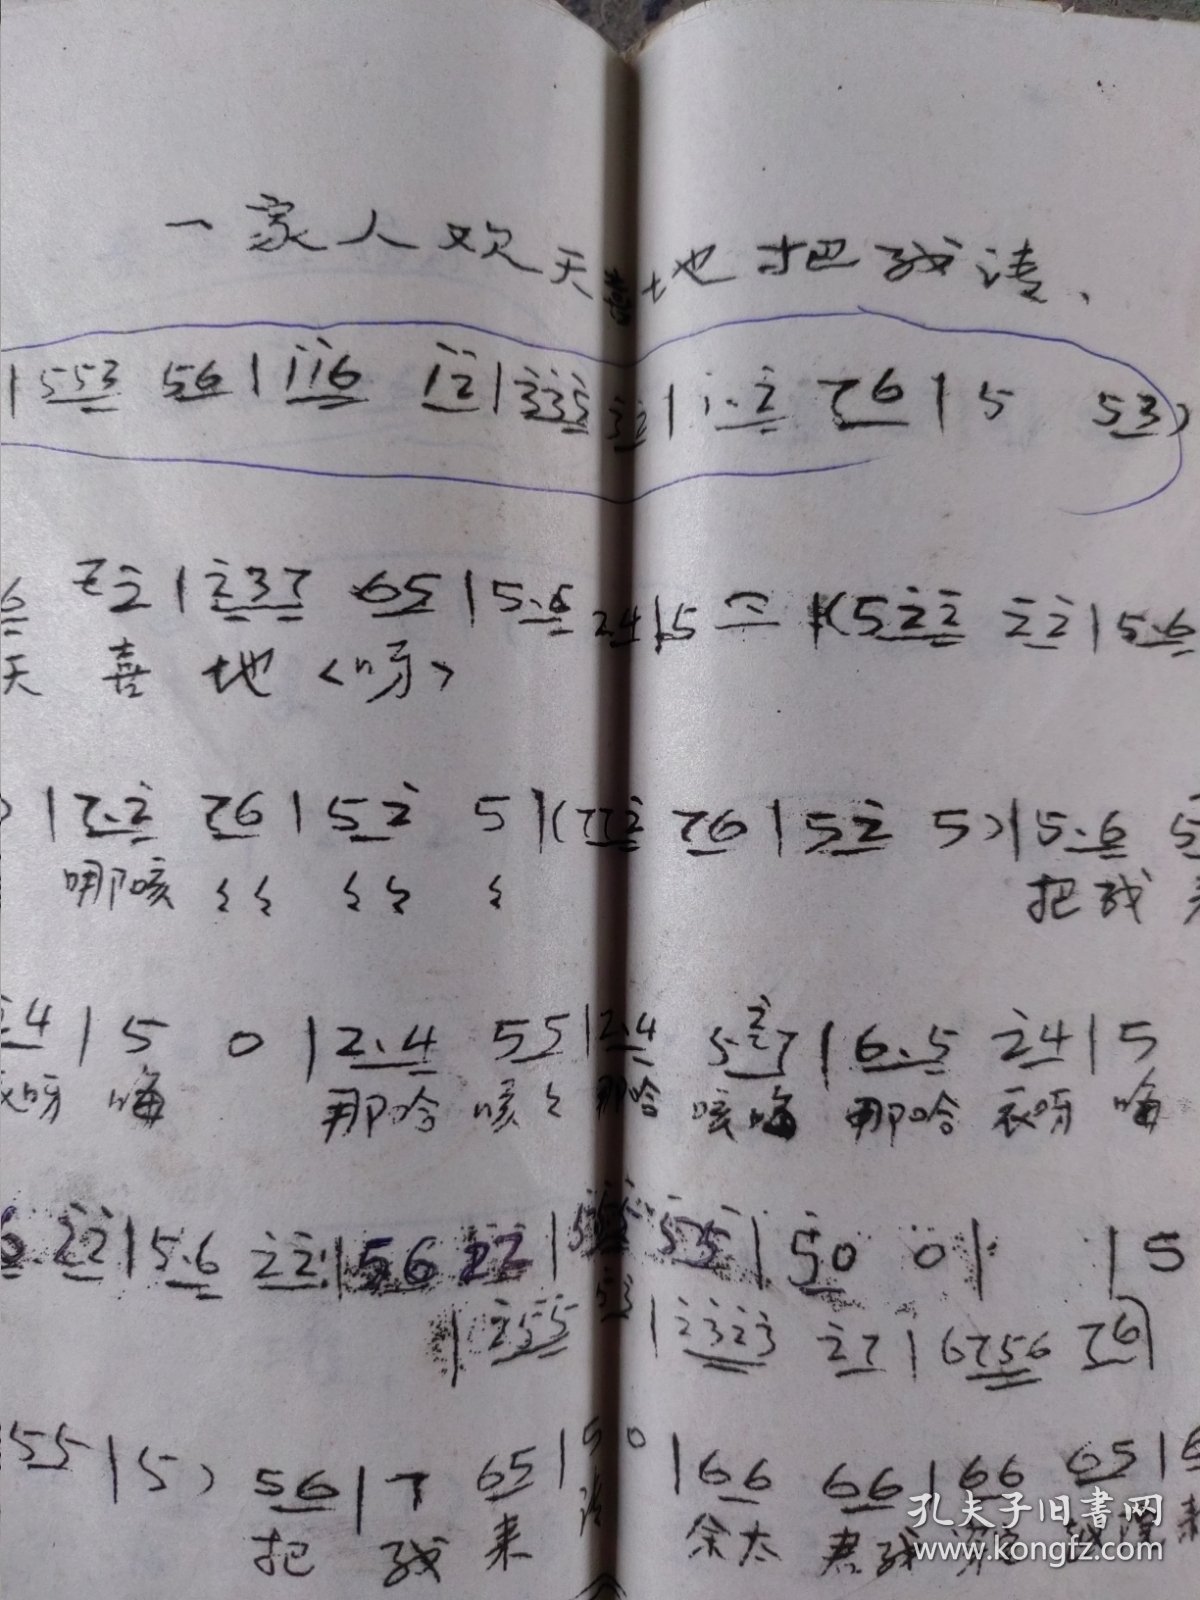 一家人欢天喜地把我请、
|553 56|i̇i̇6 i̇2̇|3̇3̇5̇ 3̇2̇|i̇.2̇ 76|5 53)
6 72̇|2̇37 65|5.6 24|5 - |(52̇2̇ 2̇2̇|5.6
天 喜 地〈呀〉
)|7.2̇ 76|52̇ 5|(772̇ 76|52̇ 5)|5.6 5
哪咳 〻〻 〻〻 〻 把我
2̇4|5 0|2.4 55|2.4 52̇7|6.5 2̇4|5
衣呀 嗨 那哈 咳〻 那哈 咳嗨 那哈 衣呀 嗨
6 2̇2̇|5.6 2̇2̇|56 2̇2̇| 5̇5̇|5̇0 0| |5
|2̇55 53|2̇32̇3 2̇7|6756 76)
55|5) 56|7 65|5 0|66 66|66 65|6
把 我 来 请 余太 君我 来
孔夫子旧书网
www.kongfz.com